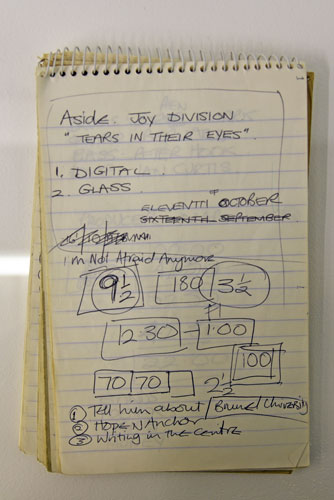 Aside JOY DIVISION
"TEARS IN THEIR EYES".
1. DIGITAL.
2. GLASS
ELEVENTH OF OCTOBER
SIXTEENTH SEPTEMBER
I'm Not Afraid Anymore
9½ 180 3½
12.30 - 1.00
100
70 70 2½
① Tell him about / Brunel University
② Hope N Anchor
③ Writing in the centre